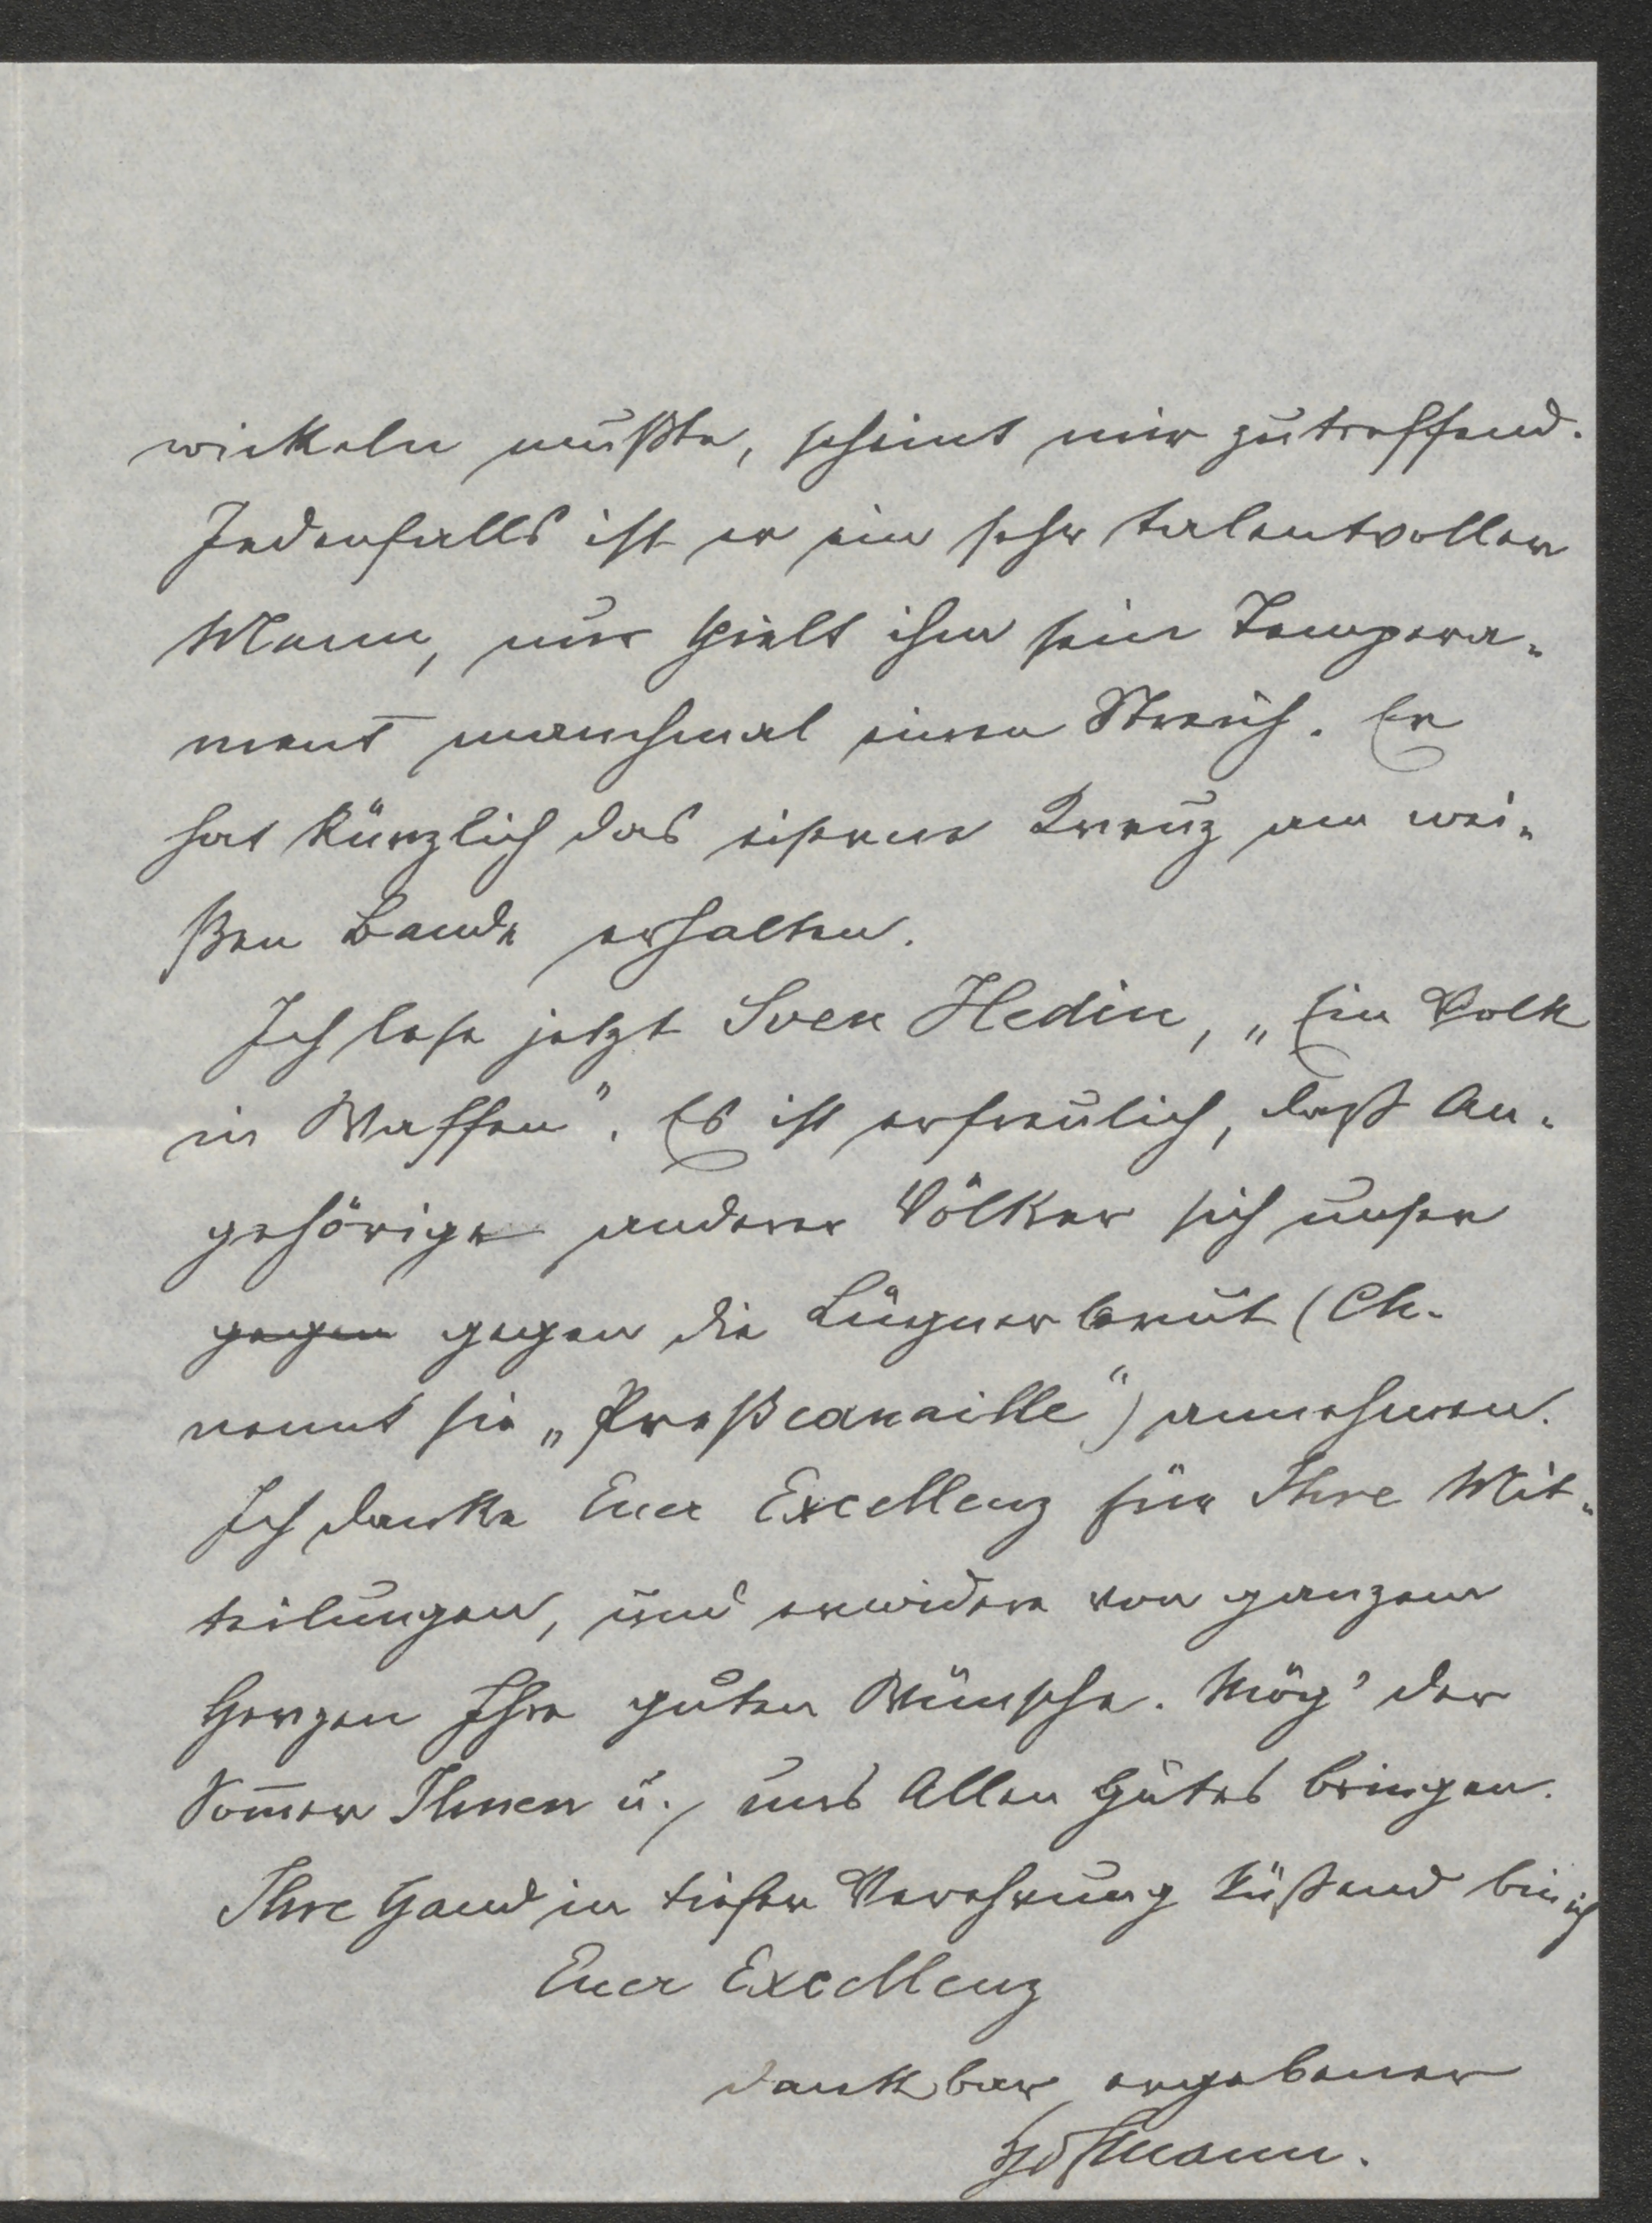 wickeln mußte, scheint mir zutreffend.
Jedenfalls ist er ein sehr talentvoller
Mann, nur spielt ihm sein Tempera-
ment manchmal einen Streich. Er
hat kürzlich das eiserne Kreuz am wei-
ßen Bande erhalten.
Ich lese jetzt Sven Hedin, „Ein Volk
in Waffen“. Es ist erfreulich, daß An-
gehörige anderer Völker sich unser
gegen gegen die Lügnerbrut (Ch.
nennt sie „Preßcanaille“) annehmen.
Ich danke Euer Excellenz für Ihre Mit-
teilungen, und erwidere von ganzem
Herzen Ihre guten Wünsche. Mög' der
Som̄er Ihnen u. uns Allen Gutes bringen.
Ihre Hand in tiefer Verehrung küssend bin ich
Euer Excellenz
dankbar ergebener
Hofmann.